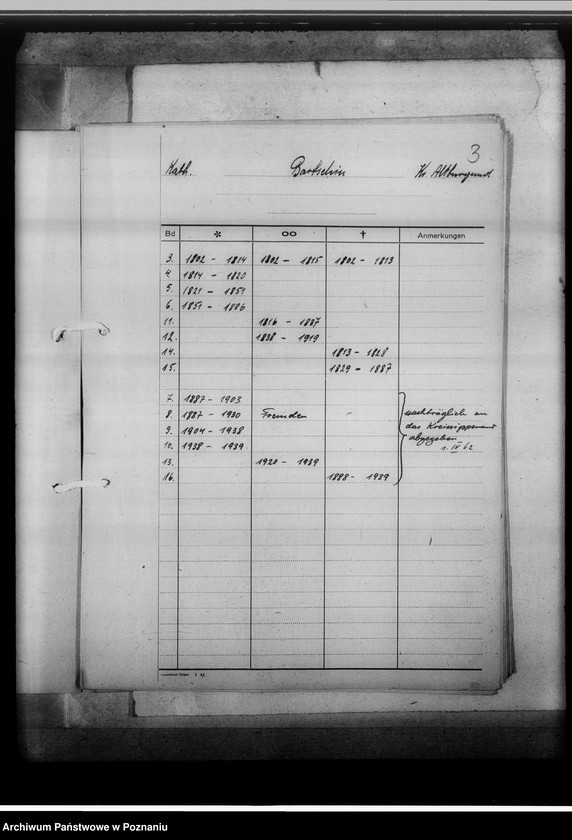 3
Kath. Bartschin Kr. Altburgund
Bd * ∞ † Anmerkungen
3. 1802 - 1814 1802 - 1815 1802 - 1813
4. 1814 - 1820
5. 1821 - 1851
6. 1851 - 1886
11. 1816 - 1837
12. 1838 - 1919
14. 1813 - 1828
15. 1829 - 1887
7. 1887 - 1903
8. 1887 - 1930 Fremden - nachträglich an
9. 1904 - 1938 das Kreissippenamt
10. 1938 - 1939 abgegeben
1. IV 62
13. 1920 - 1939
16. 1888 - 1939
Archiwum Państwowe w Poznaniu